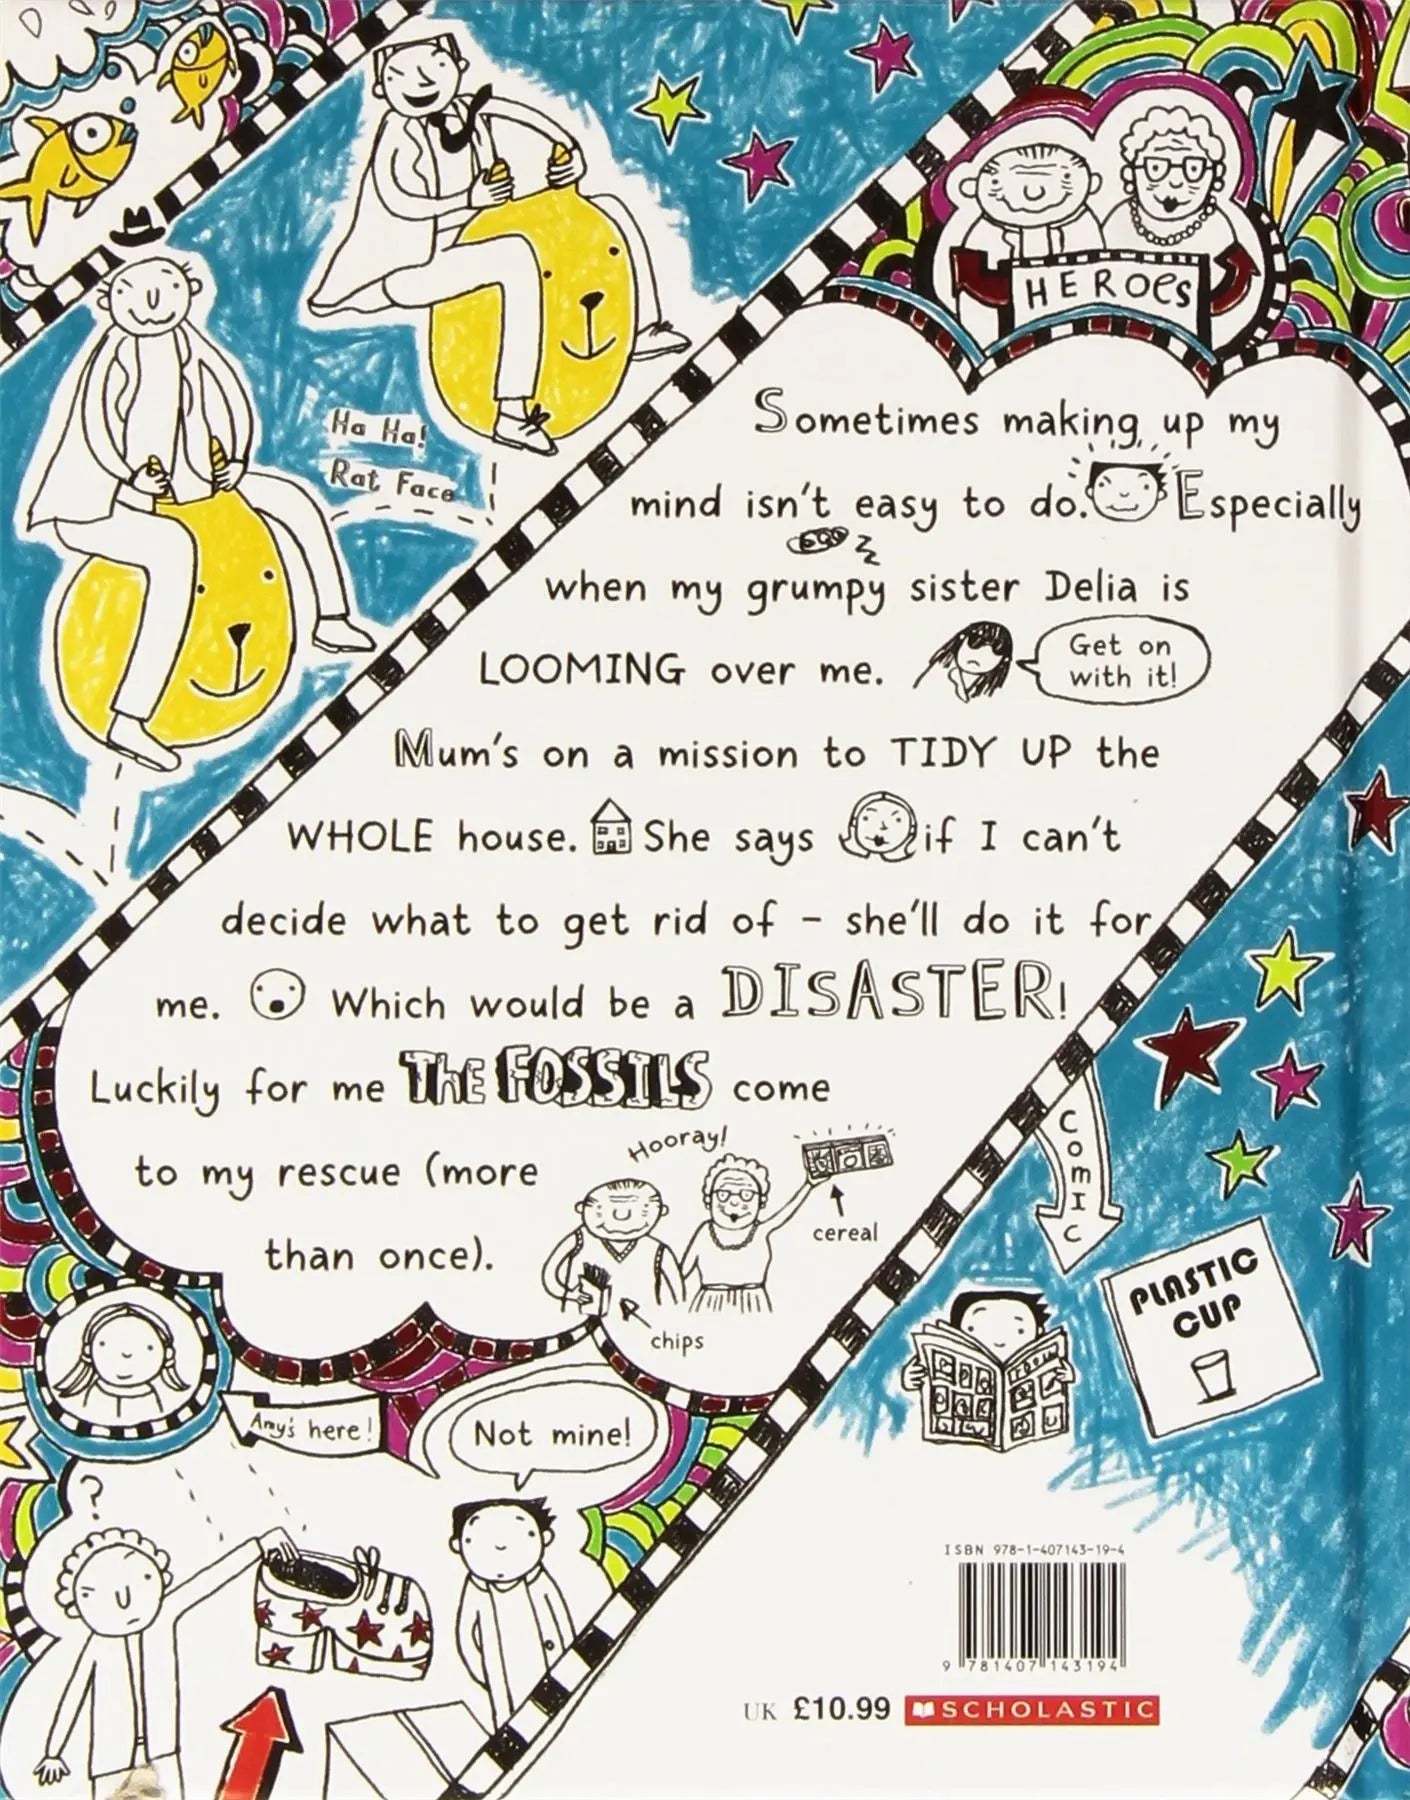 HEROES
Ha Ha!
Rat Face
Sometimes making up my
mind isn't easy to do. Especially
when my grumpy sister Delia is
LOOMING over me.
Get on
with it!
Mum's on a mission to TIDY UP the
WHOLE house. She says if I can't
decide what to get rid of – she'll do it for
me. Which would be a DISASTER!
Luckily for me THE FOSSILS come
to my rescue (more
than once).
Hooray!
cereal
chips
COMIC
PLASTIC
CUP
Amy's here!
Not mine!
?
ISBN 978-1-407143-19-4
9 781407 143194
UK £10.99 SCHOLASTIC